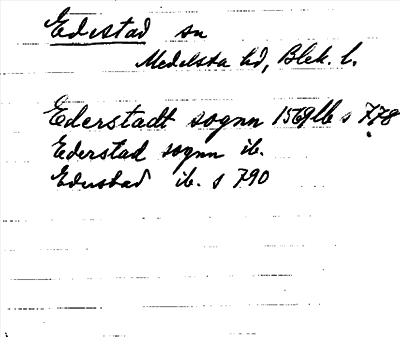 Edestad sn
Medelsta hd, Blek. l.
Ederstadt sognn 1569 lb s 778
Ederstad sogn ib.
Ederstad ib. s 790